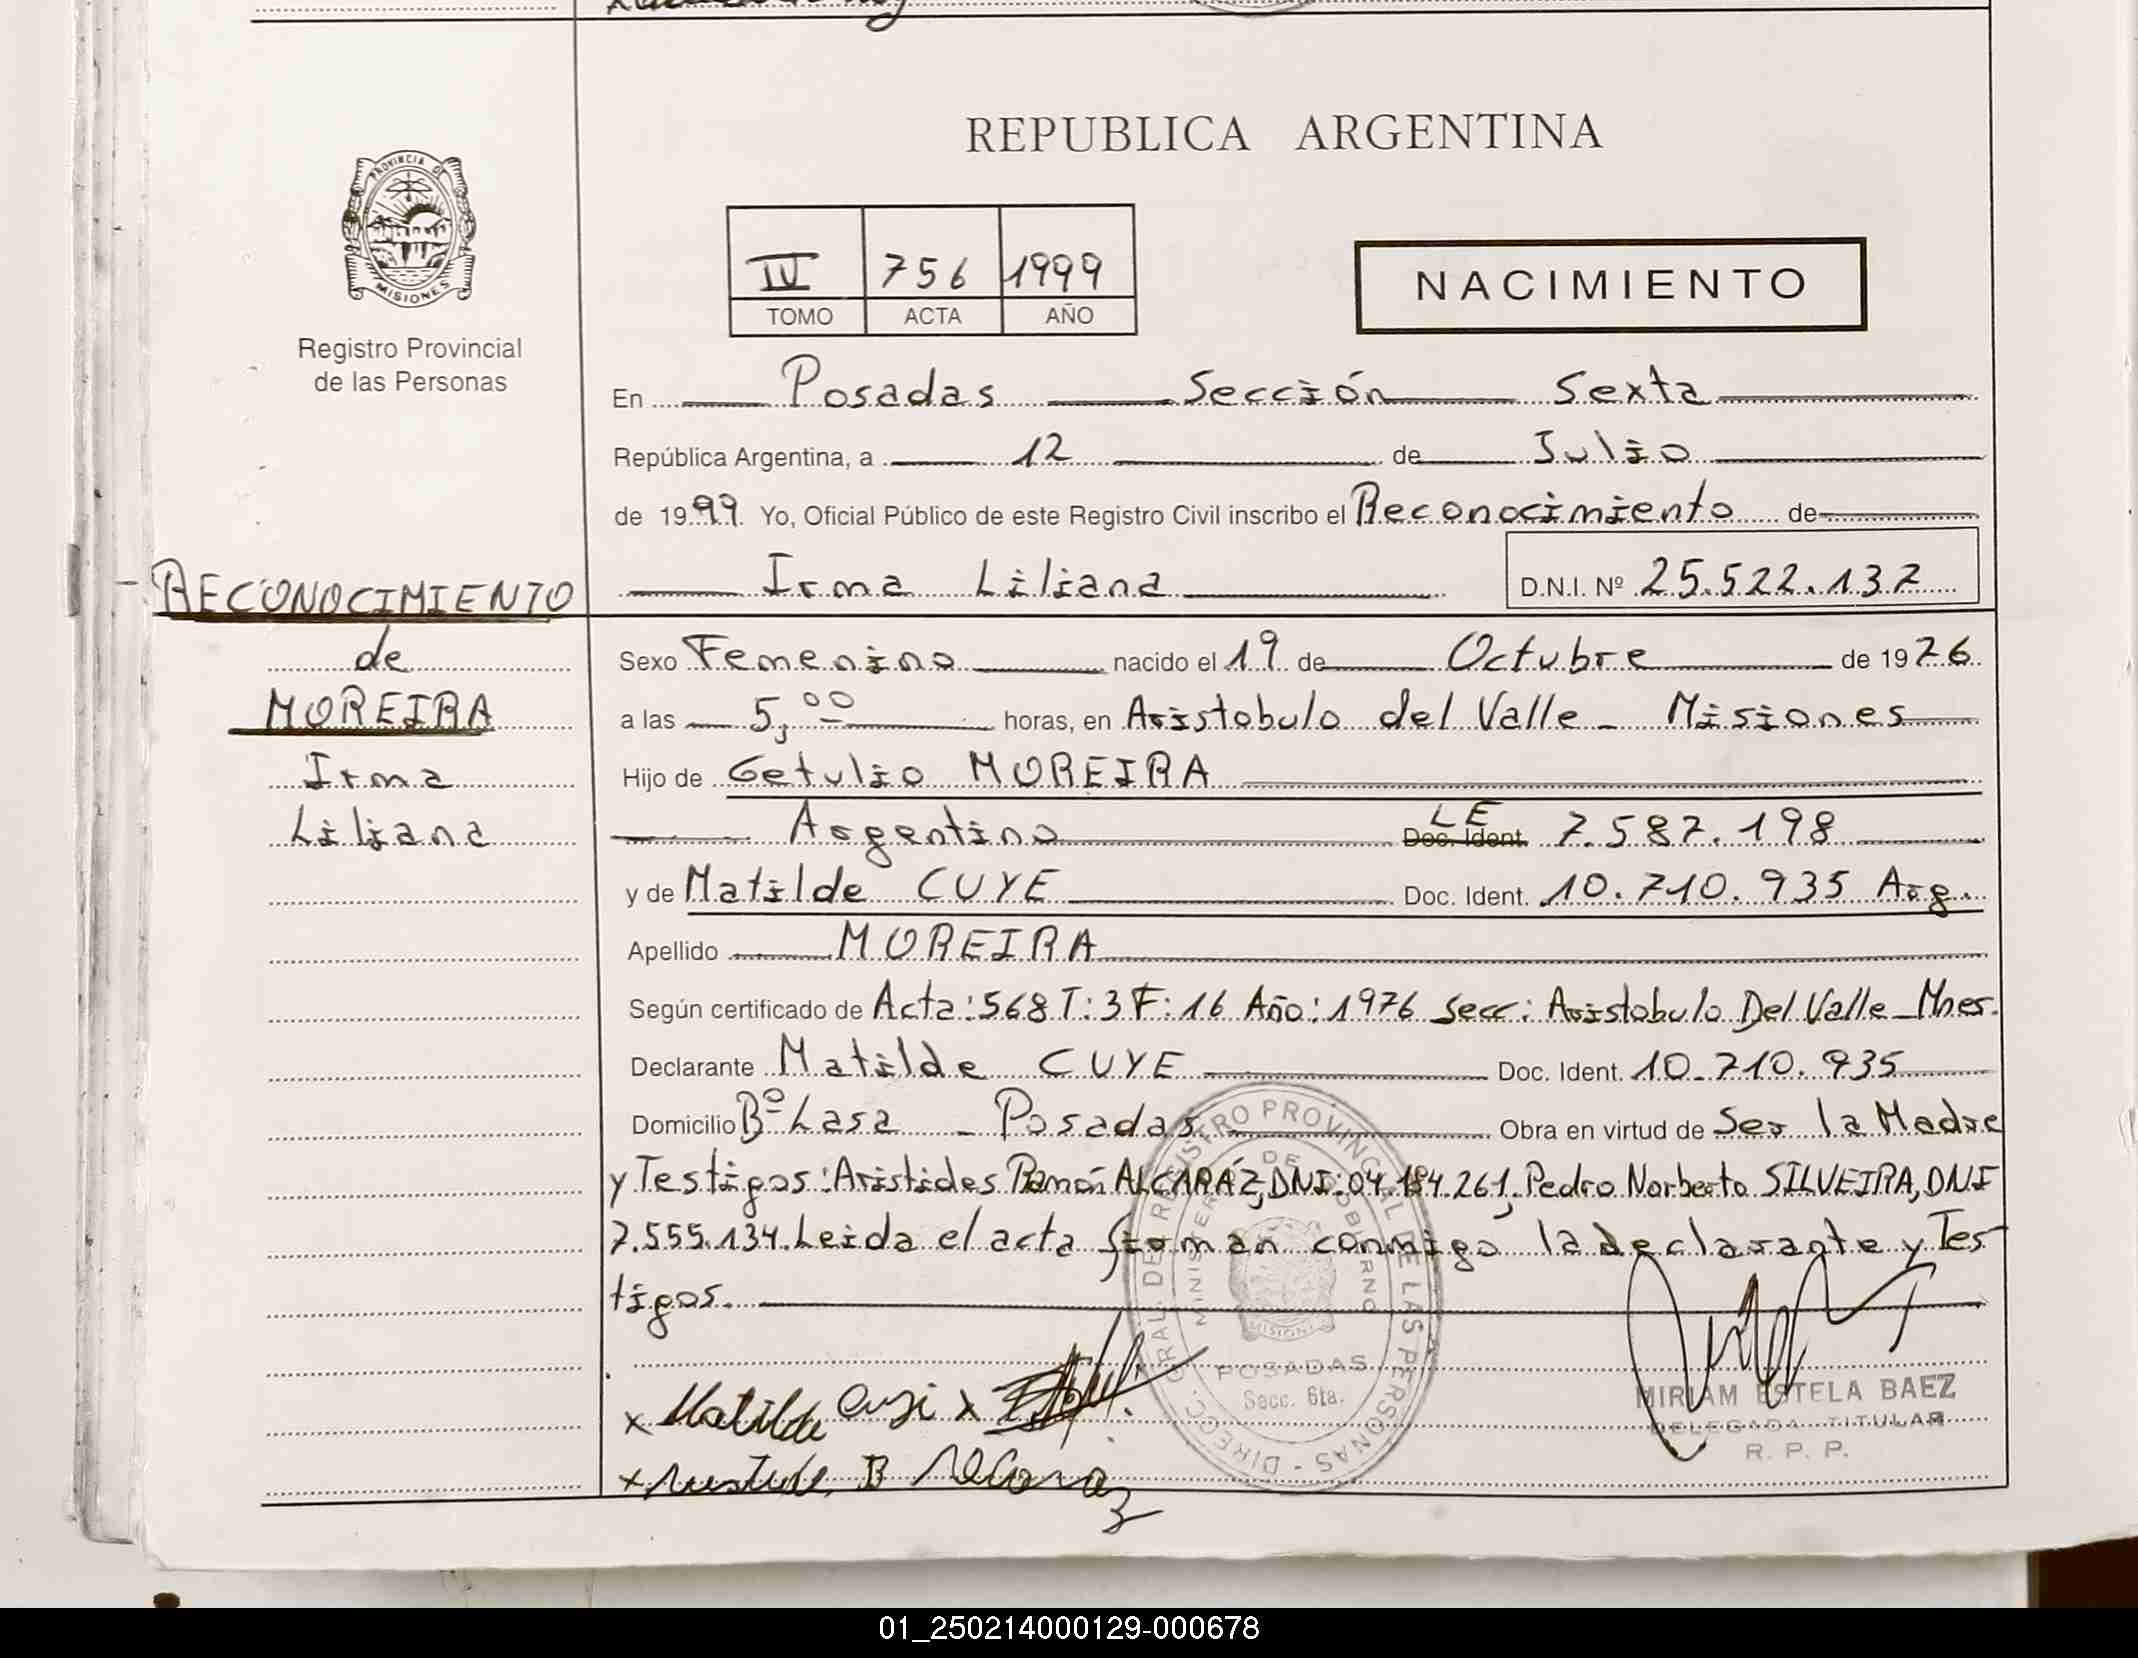 REPUBLICA ARGENTINA
PROVINCIA DE
MISIONES
Registro Provincial
de las Personas
IV 756 1999
TOMO ACTA AÑO
NACIMIENTO
En Posadas Sección Sexta
República Argentina, a 12 de Julio
de 1999 Yo, Oficial Público de este Registro Civil inscribo el Reconocimiento de
Irma Liliana D.N.I. Nº 25.522.137
RECONOCIMIENTO
de
MOREIRA
Irma
Liliana
Sexo Femenino nacido el 19 de Octubre de 1976
a las 5,00 horas, en Aristobulo del Valle - Misiones
Hijo de Getulio MOREIRA
Argentino LE Doc. Ident. 7.587.198
y de Matilde CUYE Doc. Ident. 10.710.935 Arg.
Apellido MOREIRA
Según certificado de Acta: 568 T: 3 F: 16 Año: 1976 Secc: Aristobulo Del Valle - Mnes.
Declarante Matilde CUYE Doc. Ident. 10.710.935
Domicilio Bº Lasa - Posadas Obra en virtud de Ser la Madre
y Testigos: Aristides Ramón ALCARÁZ, DNI: 04.184.261, Pedro Norberto SILVEIRA, DNI
7.555.134. Leida el acta firman conmigo la declarante y Tes-
tigos.
x Matilde Cuyi x
x
DIREC. GRAL. DE REGISTRO PROVINCIAL DE LAS PERSONAS -
MINISTERIO DE GOBIERNO
MISIONES
POSADAS
Secc. 6ta.
MIRIAM ESTELA BAEZ
DELEGADA TITULAR
R. P. P.
01_250214000129-000678